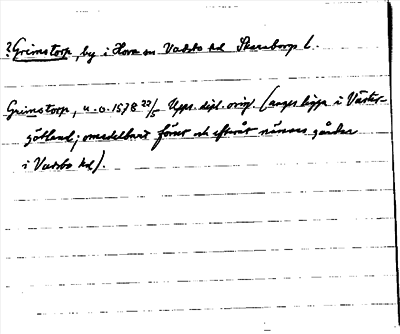 ?Grimstorp, by i Hova sn Vadsbo hd Skaraborgs l.
Grimstorp, u. o. 1578 22/5 Upps. dipl. orig. (anges ligga i Väster-
götland; omedelbart förut och efteråt nämnas gårdar
i Vadsbo hd).